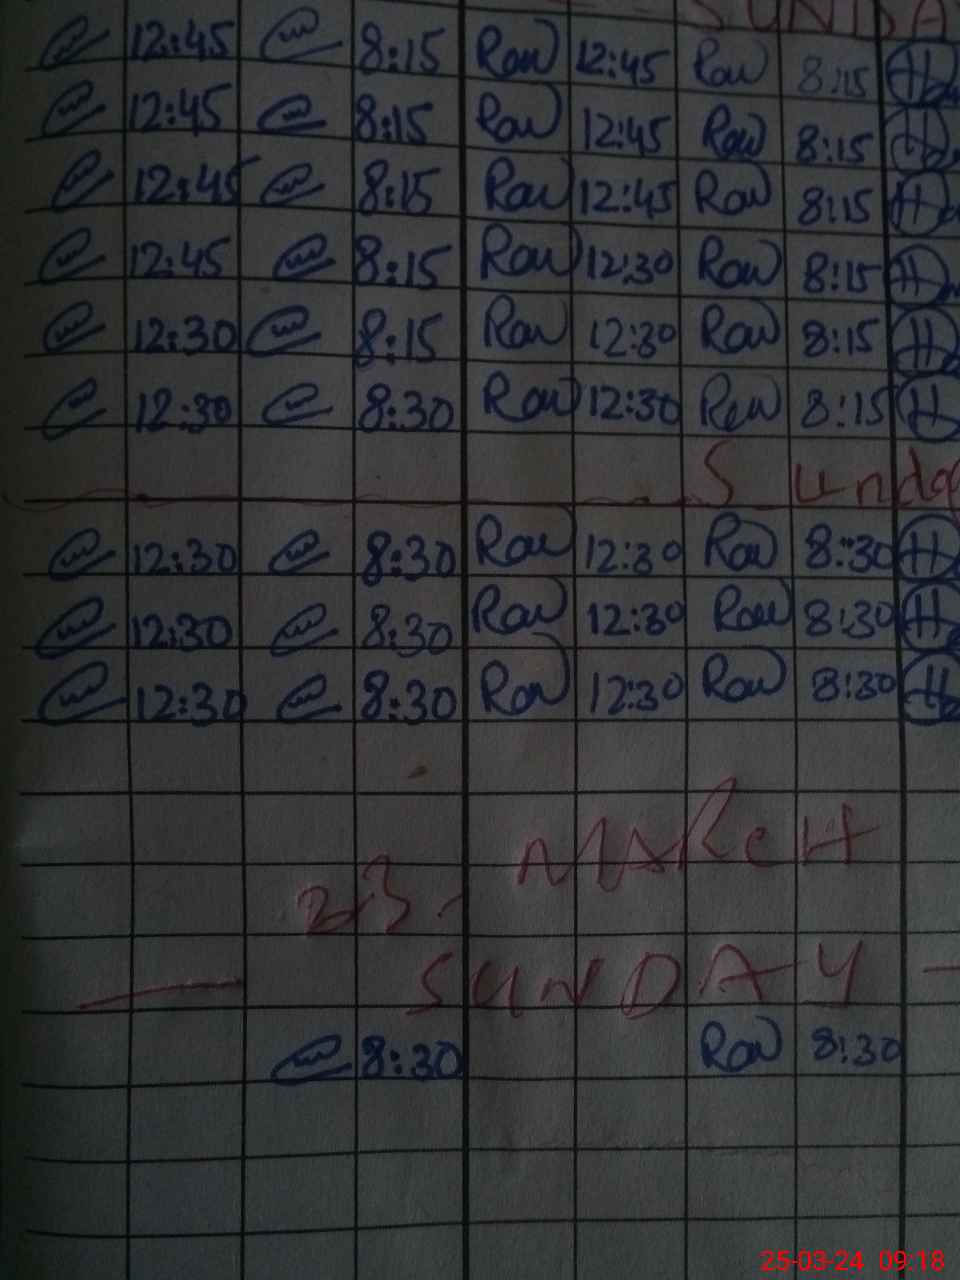 SUNDA
12:45 8:15 Rav 12:45 Rav 8:15
12:45 8:15 Rav 12:45 Rav 8:15
12:45 8:15 Rav 12:45 Rav 8:15
12:45 8:15 Rav 12:30 Rav 8:15
12:30 8:15 Rav 12:30 Rav 8:15
12:30 8:30 Rav 12:30 Rav 8:15
Sunda
12:30 8:30 Rav 12:30 Rav 8:30
12:30 8:30 Rav 12:30 Rav 8:30
12:30 8:30 Rav 12:30 Rav 8:30
23. MARCH
SUNDAY
8:30 Rav 8:30
25-03-24 09:18